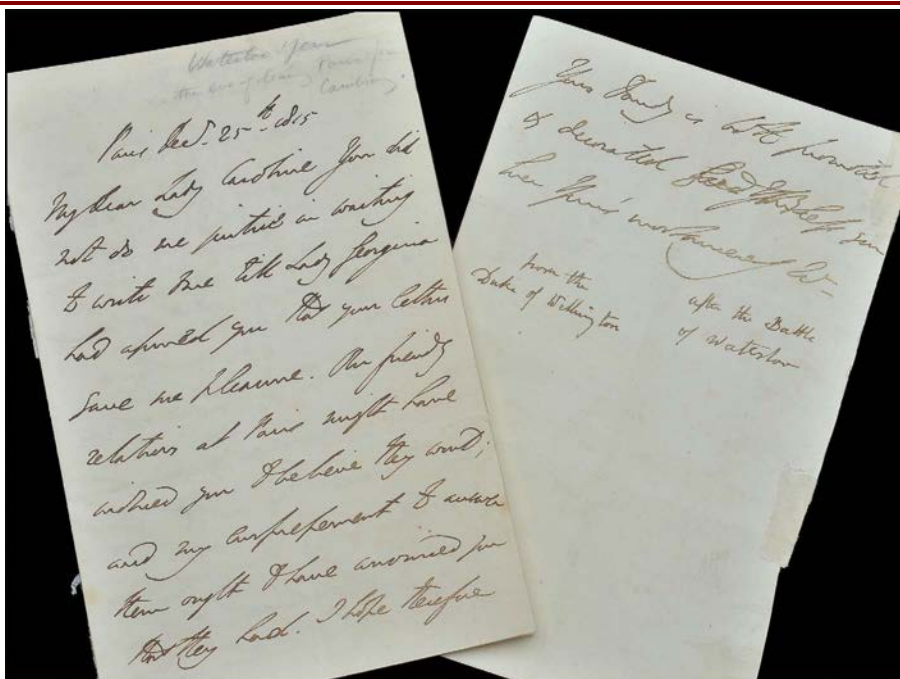 Waterloo Year
the evening
Paris Decr. 25th. 1815
My Dear Lady Caroline You did
not do me justice in waiting
to write me till Lady Georgina
had assured you that your letters
gave me pleasure. Our friendly
relations at Paris might have
induced you to believe they would;
and my to answer
them ought to have convinced you
that they had. I hope therefore
Your Family is both promoted
& decorated
Ever Yours most W-
from the
Duke of Wellington
after the Battle
of Waterloo